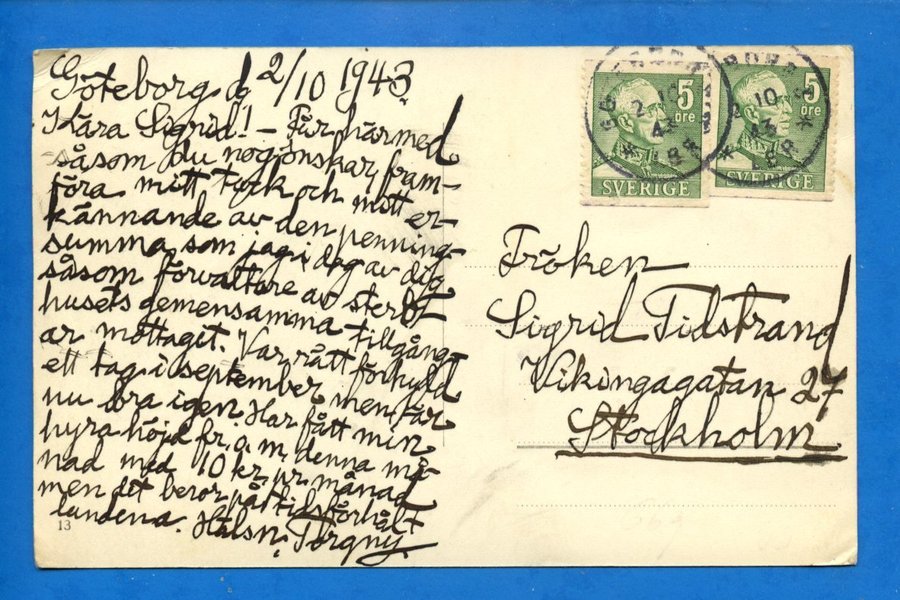 Göteborg d. 2/10 1943.
Kära Sigrid! – Får härmed
såsom du nog önskar, fram-
föra mitt tack och mott er-
kännande av den penning-
summa som jag i dag av dig
såsom förvaltare av sterb-
husets gemensamma tillgång-
ar mottagit. Var rätt förkyld
ett tag i september men är
nu bra igen. Har fått min
hyra höjd fr. o. m. denna må-
nad med 10 kr. pr. månad
men det beror på tidsförhål-
landena. Hälsn. Torgny.
13
GÖTEBORG
2 10
43
5
öre
SVERIGE
GÖTEBORG
2 10
43
5
öre
SVERIGE
Fröken
Sigrid Tidstrand
Vikingagatan 27
Stockholm